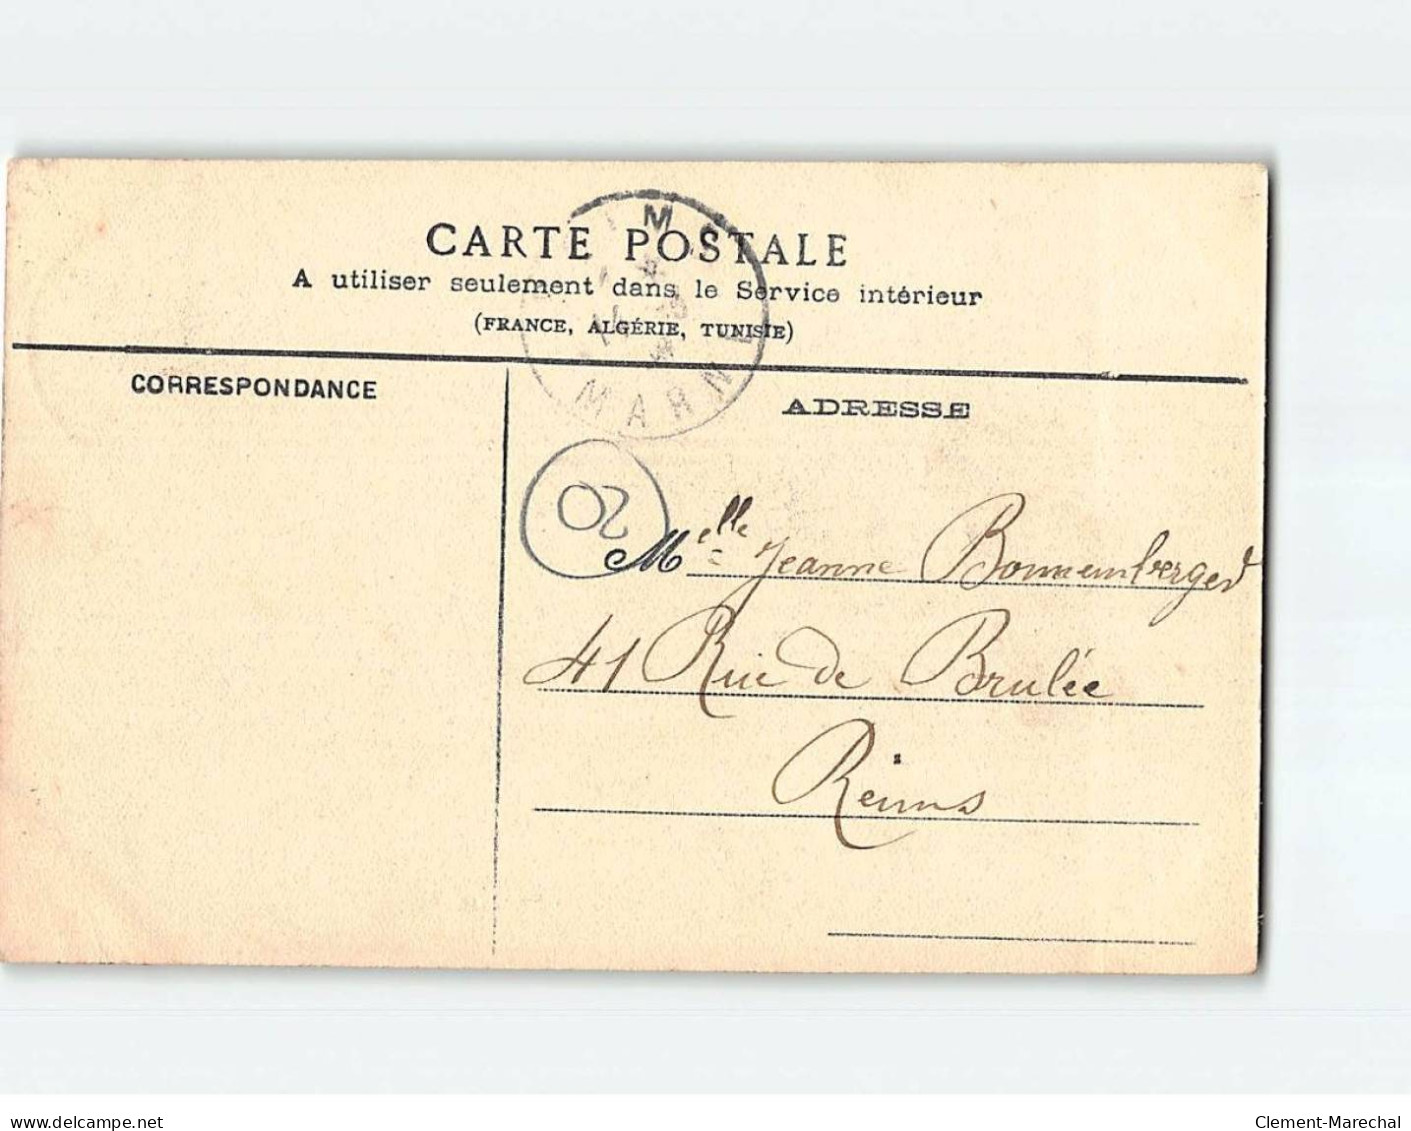 CARTE POSTALE
A utiliser seulement dans le Service intérieur
(FRANCE, ALGÉRIE, TUNISIE)
CORRESPONDANCE
ADRESSE
MARNE
20
Melle Jeanne
41 Rue de Brulée
Reims
delcampe.net
Clement-Marechal